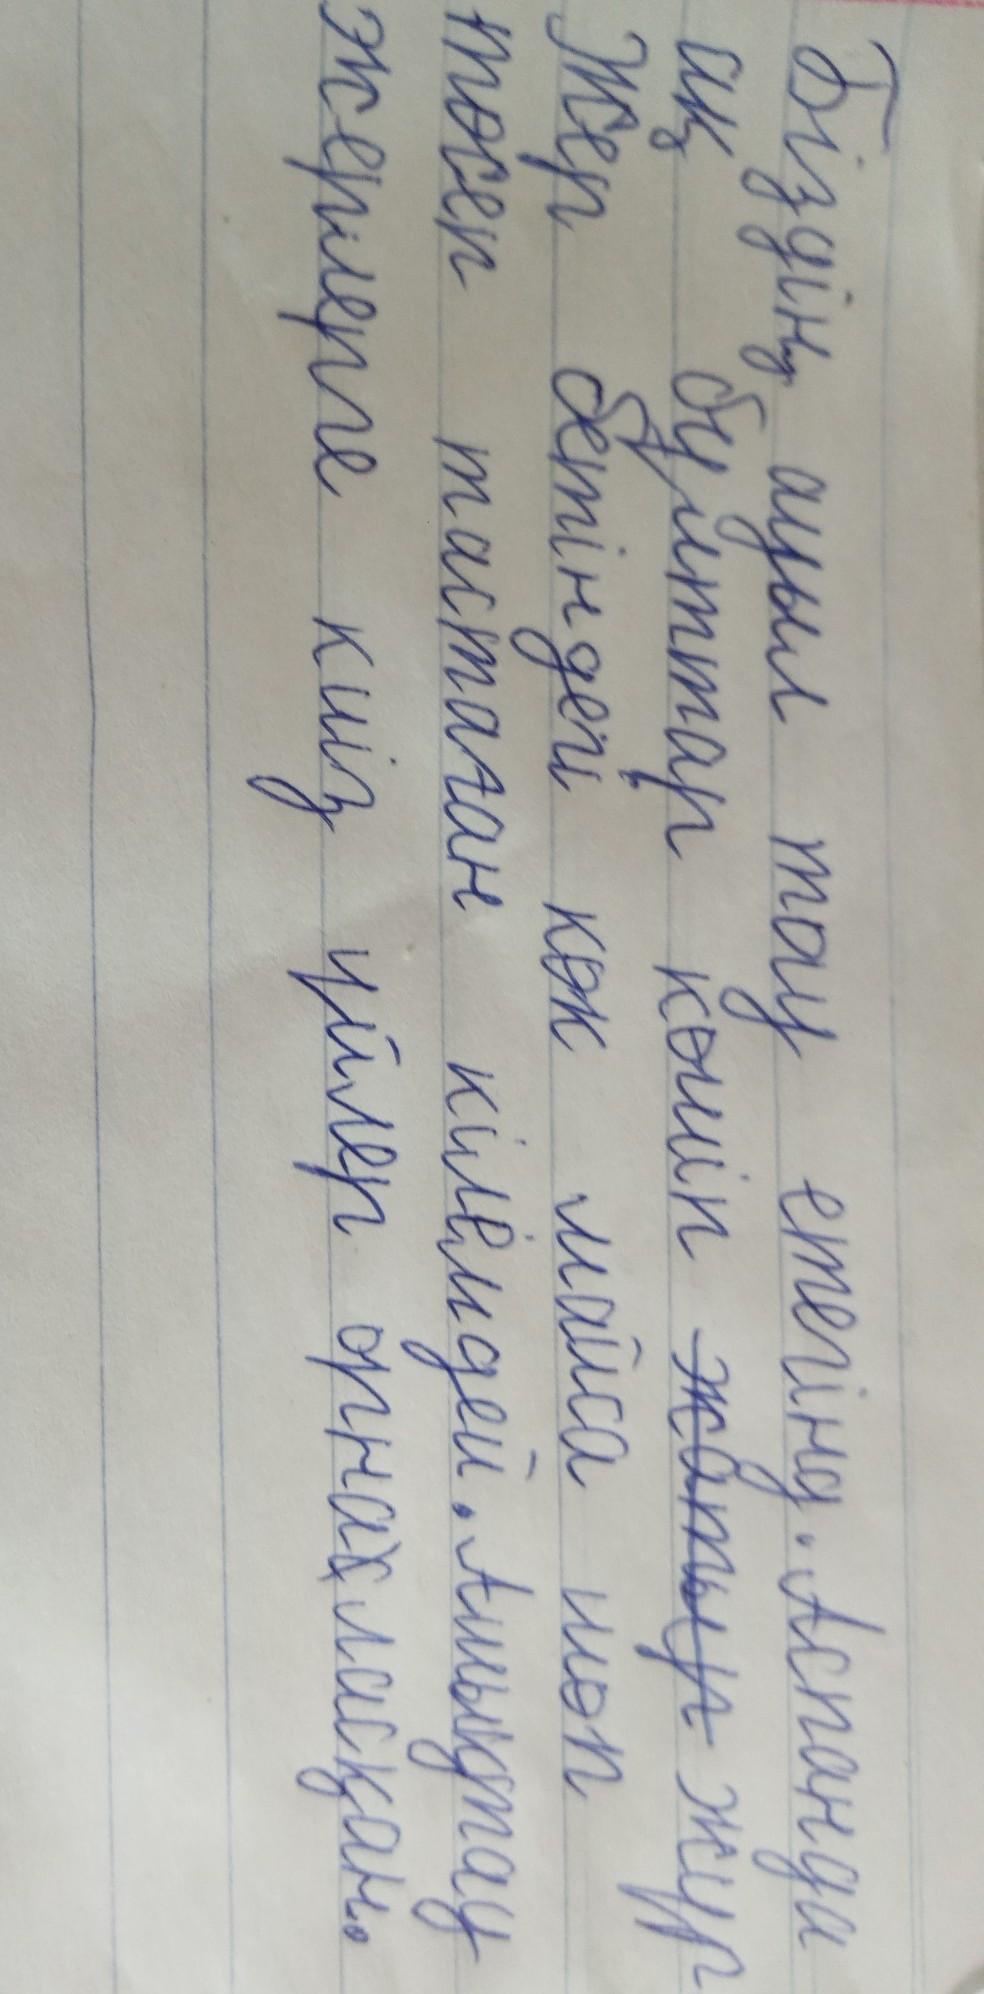 Біздің ауыл тау етегінд. Аспанда
ақ бұлттар көшіп жүр
Жер бетіндегі көк майса шөп
төсеп тастаған кілемдей. Ашықтау
жерлерге киіз үйлер орналасқан.